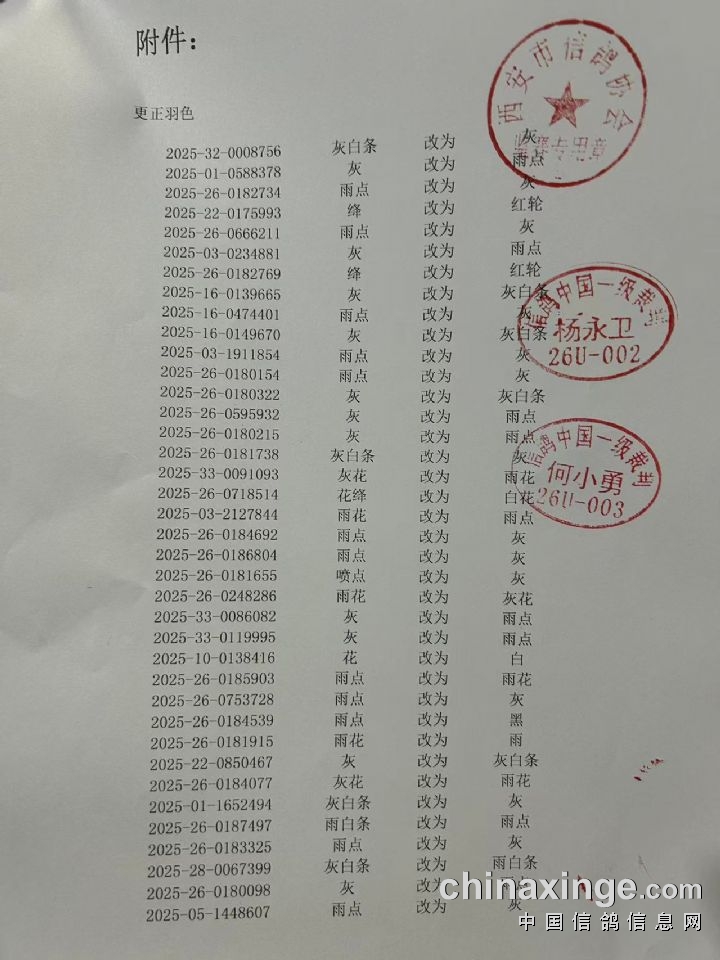 附件：
西安市信鸽协会
竞赛专用章
更正羽色
2025-32-0008756 灰白条 改为 灰
2025-01-0588378 灰 改为 雨点
2025-26-0182734 雨点 改为 灰
2025-22-0175993 绛 改为 红轮
2025-26-0666211 雨点 改为 灰
2025-03-0234881 灰 改为 雨点
2025-26-0182769 绛 改为 红轮
2025-16-0139665 灰 改为 灰白条
2025-16-0474401 雨点 改为 灰
2025-16-0149670 灰 改为 灰白条
2025-03-1911854 雨点 改为 灰
2025-26-0180154 雨点 改为 灰
2025-26-0180322 灰 改为 灰白条
2025-26-0595932 灰 改为 雨点
2025-26-0180215 灰 改为 雨点
2025-26-0181738 灰白条 改为 灰
2025-33-0091093 灰花 改为 雨花
2025-26-0718514 花绛 改为 白花
2025-03-2127844 雨花 改为 雨点
2025-26-0184692 雨点 改为 灰
2025-26-0186804 雨点 改为 灰
2025-26-0181655 喷点 改为 灰
2025-26-0248286 雨花 改为 灰花
2025-33-0086082 灰 改为 雨点
2025-33-0119995 灰 改为 雨点
2025-10-0138416 花 改为 白
2025-26-0185903 雨点 改为 雨花
2025-26-0753728 雨点 改为 灰
2025-26-0184539 雨点 改为 黑
2025-26-0181915 雨花 改为 雨
2025-22-0850467 灰 改为 灰白条
2025-26-0184077 灰花 改为 雨花
2025-01-1652494 灰白条 改为 灰
2025-26-0187497 雨白条 改为 雨点
2025-26-0183325 雨点 改为 灰
2025-28-0067399 灰白条 改为 雨白条
2025-26-0180098 灰 改为
2025-05-1448607 雨点 改为 灰
信鸽中国一级裁判
杨永卫
26U-002
信鸽中国一级裁判
何小勇
26U-003
chinaxinge.com
中国信鸽信息网